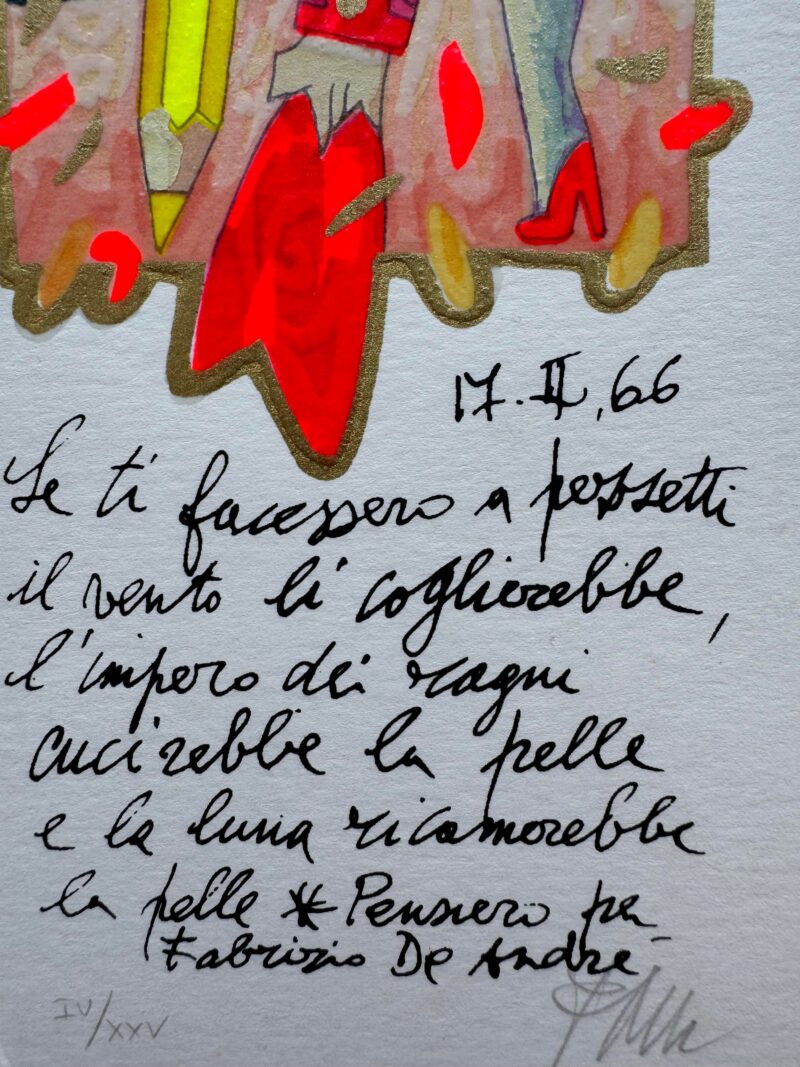 17.II.66
Se ti facessero a pezzetti
il vento li coglierebbe,
l'impero dei ragni
cucirebbe la pelle
e la luna ricamerebbe
la pelle * Pensiero per
Fabrizio De Andrè
IV/XXV